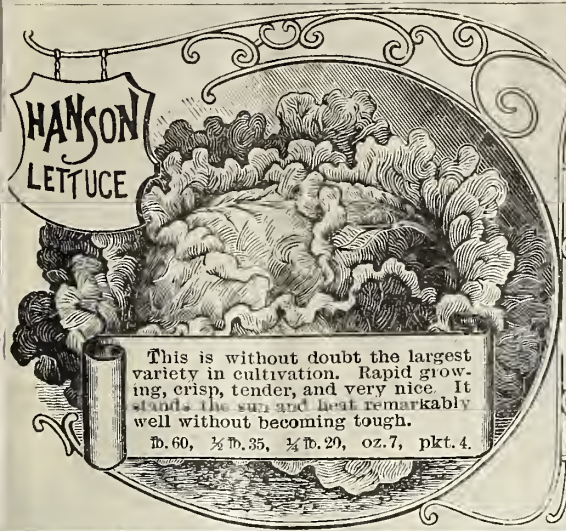 HANSON
LETTUCE
This is without doubt the largest
variety in cultivation. Rapid grow-
ing, crisp, tender, and very nice. It
stands the sun and heat remarkably
well without becoming tough.
℔. 60, ½ ℔. 35, ¼ ℔. 20, oz. 7, pkt. 4.